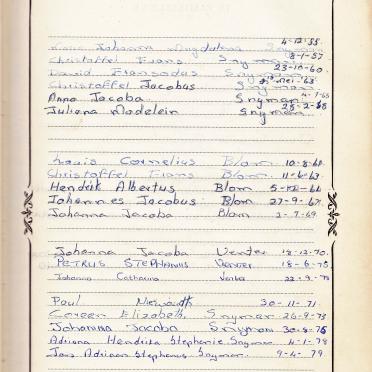 Johanna Magdalena Snyman 4-12-55
Christoffel Frans Snyman 8-1-57
David Fransodus Snyman 23-10-60
Christoffel Jacobus Snyman Mei-63
Anna Jacoba Snyman
Juliana Madelein Snyman 28-2-68
Louis Cornelius Blom 10-8-61
Christoffel Frans Blom 11-6-63
Hendrik Albertus Blom 5-12-64
Johannes Jacobus Blom 27-9-67
Johanna Jacoba Blom 2-7-69
Johanna Jacoba Venter 18-12-70
PETRUS STEPHANUS Venter 18-6-75
Johanna Catharina Venter 22-9-78
Paul 30-11-71
Coreen Elizabeth Snyman 26-9-73
Johanna Jacoba Snyman 30-8-76
Adriana Hendrika Stephanie Snyman 4-1-78
Jan Adriaan Stephanus Snyman 9-4-79